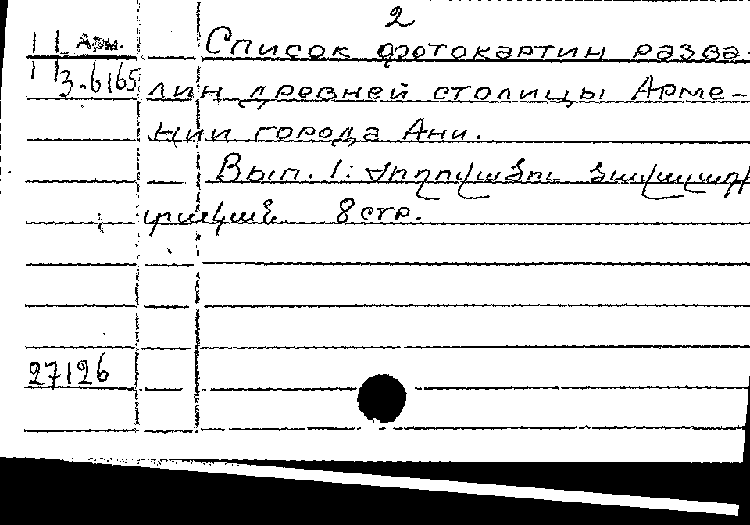 2
11 Арм.
3-6165
Список фотокартин разва-
лин древней столицы Арме-
нии города Ани.
Вып. 1: Ժողովածու
8 стр.
27126